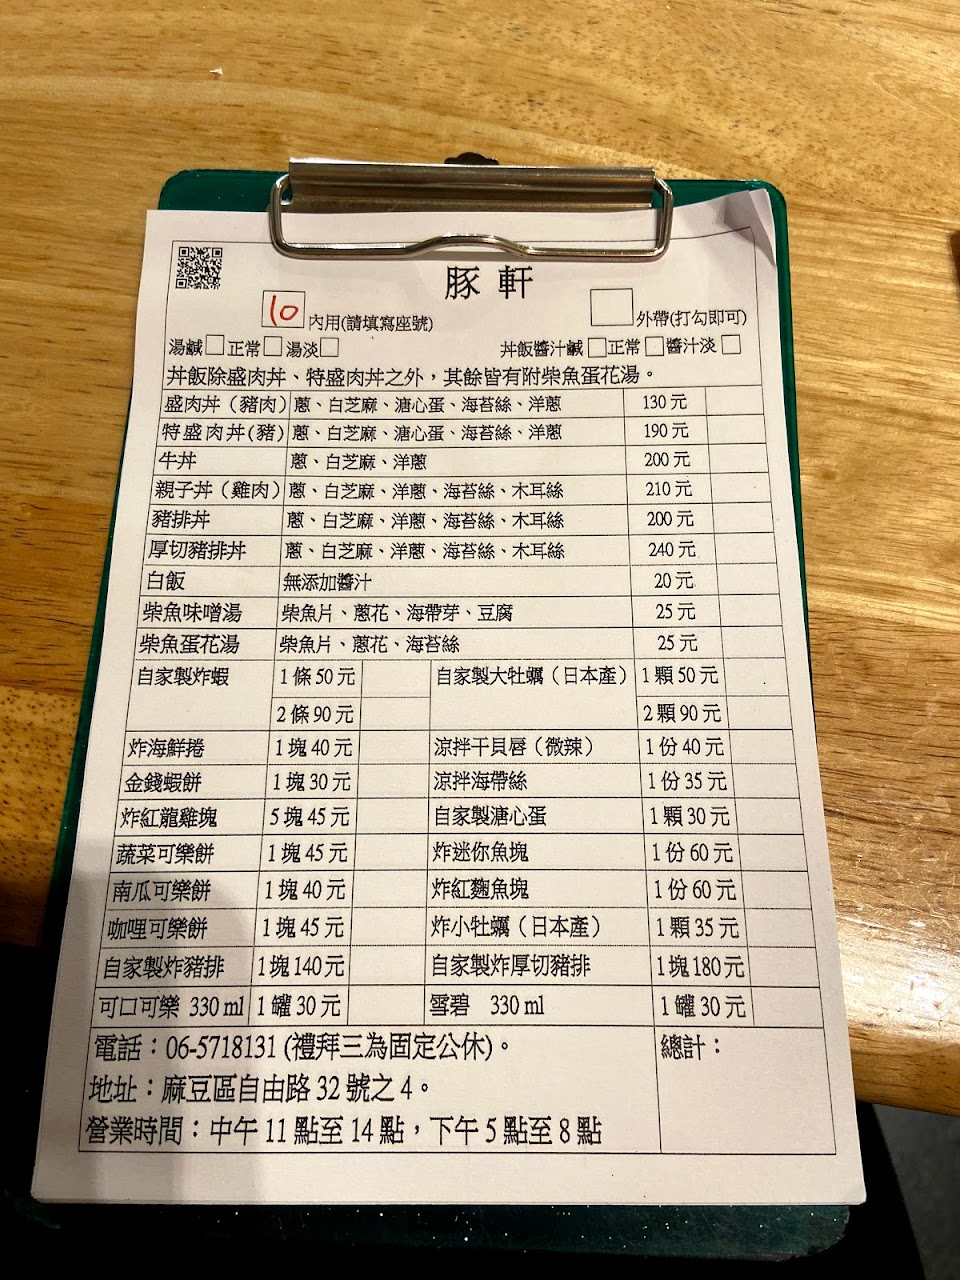 豚軒
10 內用(請填寫座號) 外帶(打勾即可)
湯鹹 正常 湯淡 丼飯醬汁鹹 正常 醬汁淡
丼飯除盛肉丼、特盛肉丼之外，其餘皆有附柴魚蛋花湯。
盛肉丼（豬肉） 蔥、白芝麻、溏心蛋、海苔絲、洋蔥 130元
特盛肉丼(豬) 蔥、白芝麻、溏心蛋、海苔絲、洋蔥 190元
牛丼 蔥、白芝麻、洋蔥 200元
親子丼（雞肉） 蔥、白芝麻、洋蔥、海苔絲、木耳絲 210元
豬排丼 蔥、白芝麻、洋蔥、海苔絲、木耳絲 200元
厚切豬排丼 蔥、白芝麻、洋蔥、海苔絲、木耳絲 240元
白飯 無添加醬汁 20元
柴魚味噌湯 柴魚片、蔥花、海帶芽、豆腐 25元
柴魚蛋花湯 柴魚片、蔥花、海苔絲 25元
自家製炸蝦 1條50元 自家製大牡蠣（日本產） 1顆50元
2條90元 2顆90元
炸海鮮捲 1塊40元 涼拌干貝唇（微辣） 1份40元
金錢蝦餅 1塊30元 涼拌海帶絲 1份35元
炸紅龍雞塊 5塊45元 自家製溏心蛋 1顆30元
蔬菜可樂餅 1塊45元 炸迷你魚塊 1份60元
南瓜可樂餅 1塊40元 炸紅麴魚塊 1份60元
咖哩可樂餅 1塊45元 炸小牡蠣（日本產） 1顆35元
自家製炸豬排 1塊140元 自家製炸厚切豬排 1塊180元
可口可樂 330 ml 1罐30元 雪碧 330 ml 1罐30元
電話：06-5718131 (禮拜三為固定公休)。 總計：
地址：麻豆區自由路32號之4。
營業時間：中午11點至14點，下午5點至8點